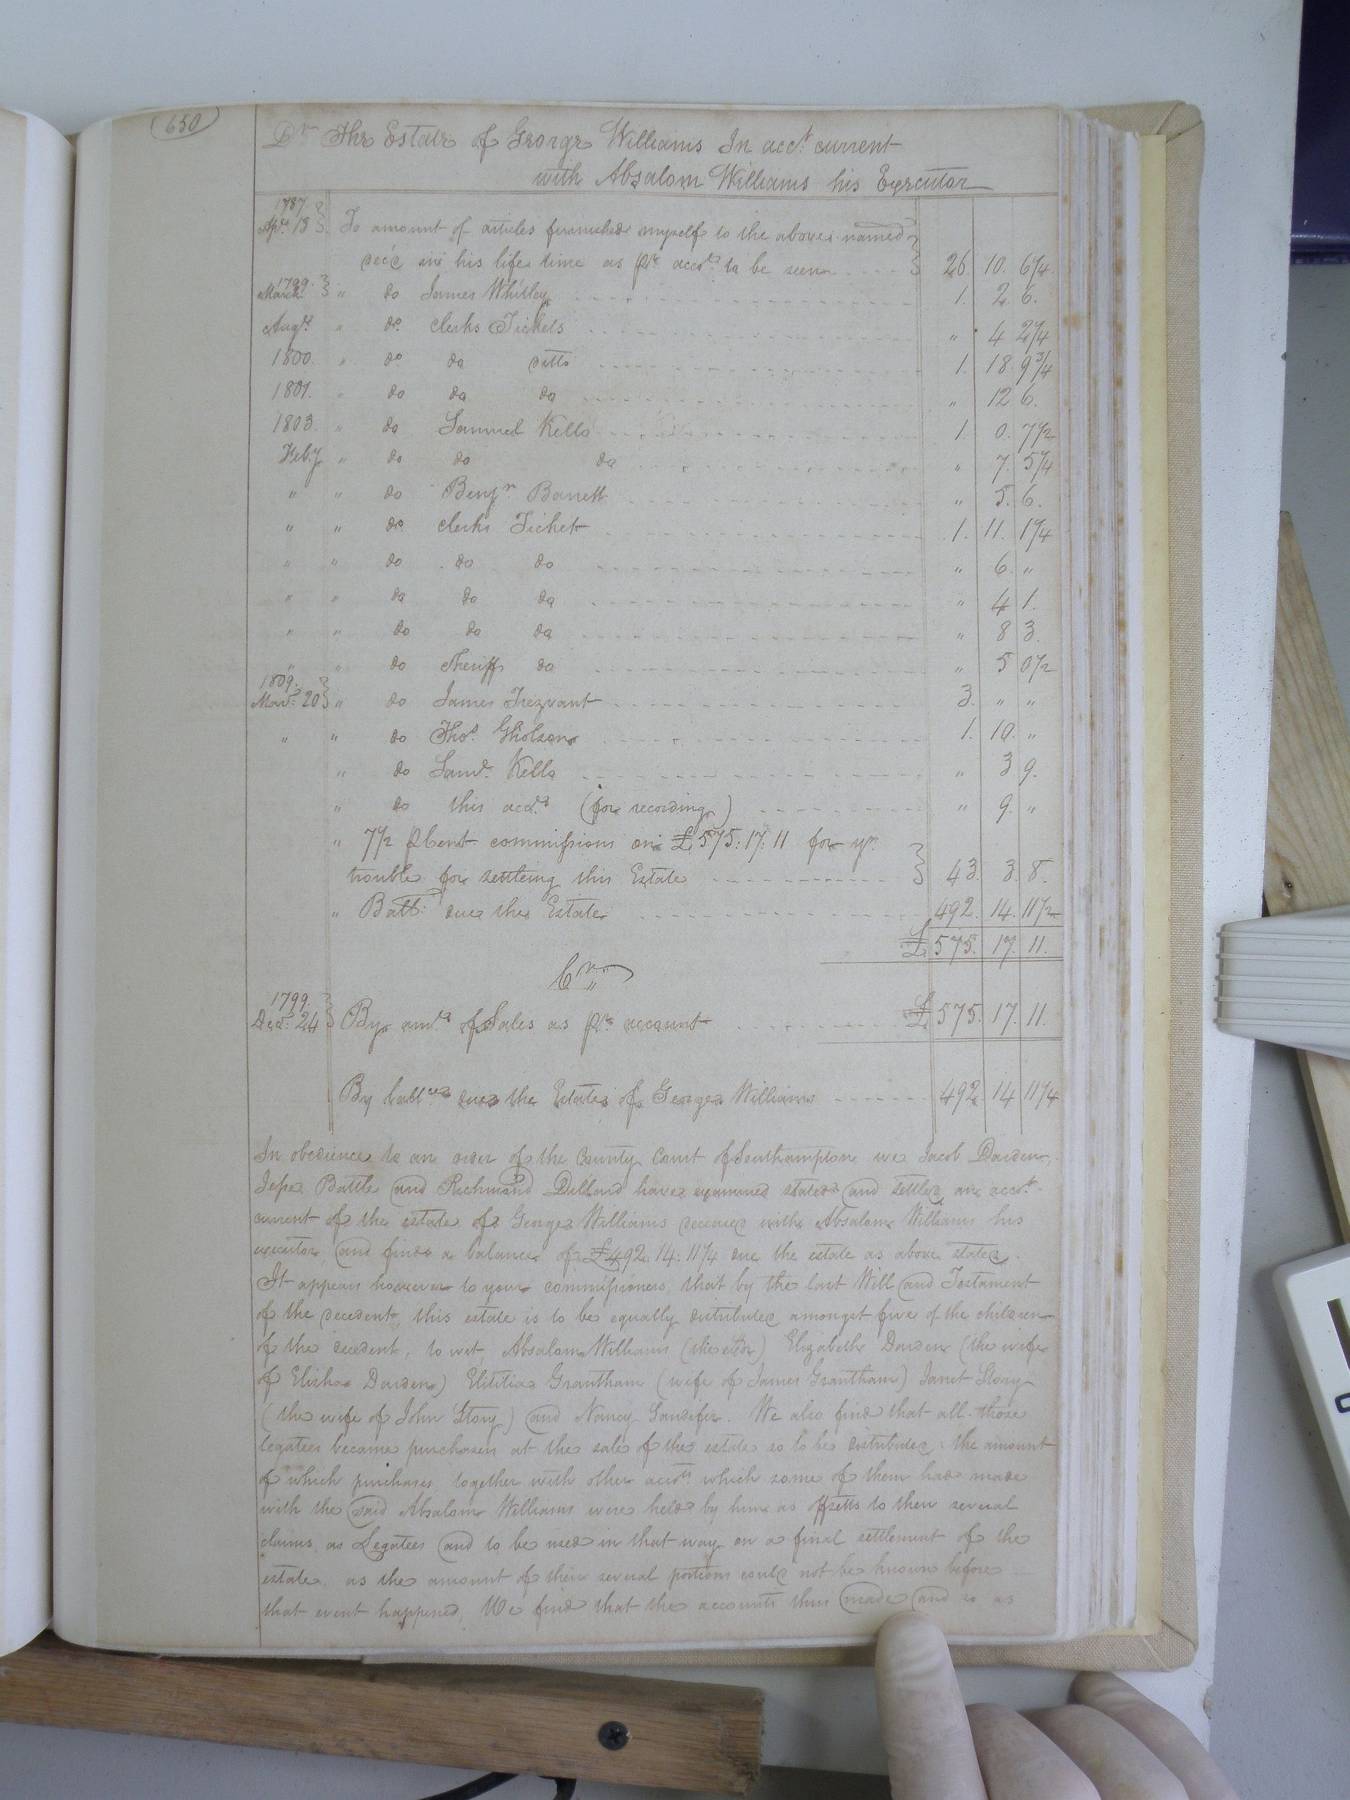 650
Dr The Estate of George Williams In acct. current
with Absalom Williams his Executor
1787. Apl. 13 To amount of articles furnished myself to the above named
dec'd in his life time as pr. accots. to be seen 26. 10. 6 1/4
1799. March " do James Whitley 1. 2. 6.
Augt. " do clerks Tickets " 4 2 1/4
1800. " do do ditto 1. 18. 9 3/4
1801. " do do do " 12 6.
1803. " do Samuel Kello 1. 0. 7 1/2
Feb.y " do do do " 7. 5 1/4
" " do Benjn Barrett " 5. 6.
" " do clerks Ticket 1. 11. 1 1/4
" " do do do " 6. "
" " do do do " 4 1.
" " do do do " 8 3.
" " do Sheriffs do " 5 0 1/2
1809. Mar. 20 " do James Trezvant 3. " "
" " do Thos. Gholson 1. 10. "
" do Saml. Kello " 3 9.
" do this acct. (for recording) " 9. "
" 7 1/2 pCent commissions on £575: 17: 11 for yr.
trouble for settling this Estate 43. 3. 8.
" Balle. due the Estate 492. 14. 11 1/2
£ 575. 17. 11.
Cr.
1799. Decr. 24 By amt. of Sales as pr. account £ 575. 17. 11.
By ballce due the Estate of George Williams 492. 14 11 1/4
In obedience to an order of the County Court of Southampton we Jacob Darden,
Jesse Battle and Richmond Dillard have examined stated and settled an acct.
current of the estate of George Williams deceased with Absalom Williams his
executor, and find a balance of £492. 14: 11 1/4 due the estate as above stated.
It appears however to your commissioners, that by the last Will and Testament
of the decedent, this estate is to be equally distributed amongst five of the children
of the decedent, to wit, Absalom Williams (the exor) Elizabeth Darden (the wife
of Elisha Darden) Elititia Grantham (wife of James Grantham) Janet Story
(the wife of John Story) and Nancy Sandifer. We also find that all those
legatees became purchasers at the sale of the estate so to be distributed: the amount
of which purchases together with other accots. which some of them had made
with the said Absalom Williams were held by him as offsetts to their several
claims, as Legatees and to be used in that way on a final settlement of the
estate, as the amount of their several portions could not be known before
that event happened, We find that the accounts thus made and so as